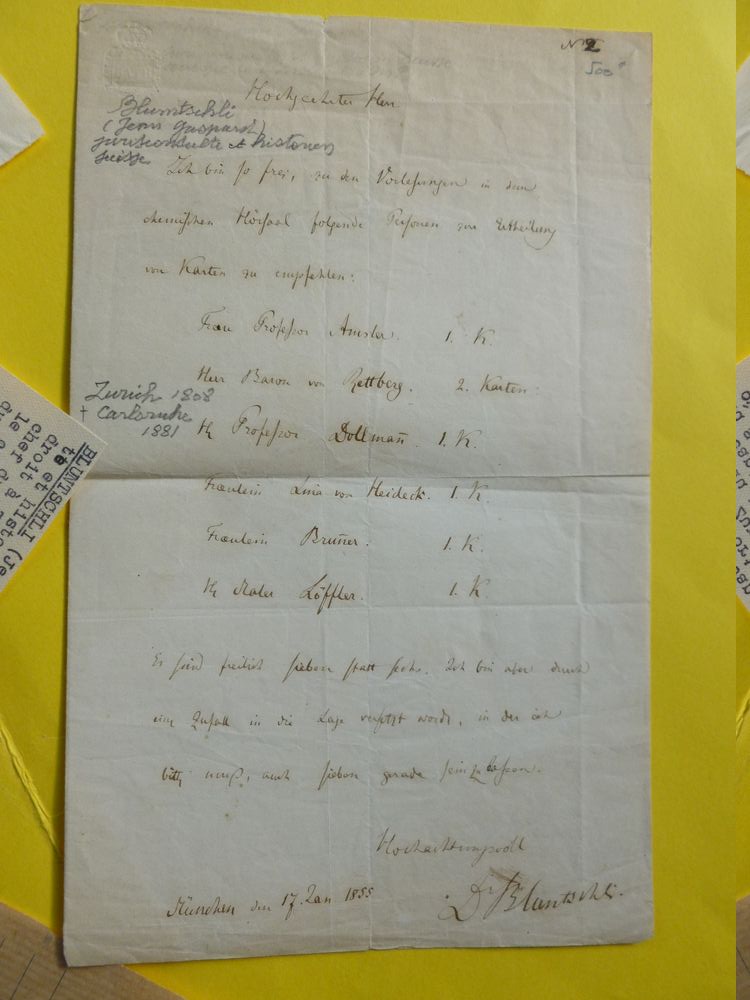 N 2
500
Hochgeehrter Herr
Bluntschli
(Jean Gaspard)
jurisconsulte et historien
suisse
Ich bin so frei, zu den Vorlesungen in dem
chemischen Hörsaal folgende Personen zur Ertheilung
von Karten zu empfehlen:
Frau Professor Amsler. 1. K.
Herr Baron von Rettberg. 2. Karten.
Zurich 1808
† Carlsruhe
1881
Hr Professor Dollmañ. 1. K.
Fräulein Lina von Heideck. 1. K
Fräulein Bruñer. 1. K.
Hr Maler Löffler. 1. K
Es sind freilich sieben statt sechs. Ich bin aber durch
einen Zufall in die Lage versetzt worden, in der ich
bitten muß, auch sieben gerade sein zu lassen.
Hochachtungsvoll
Dr Bluntschli.
München den 17. Jan 1855
BLUNTSCHLI (Je
té et histo
droit à
cher d